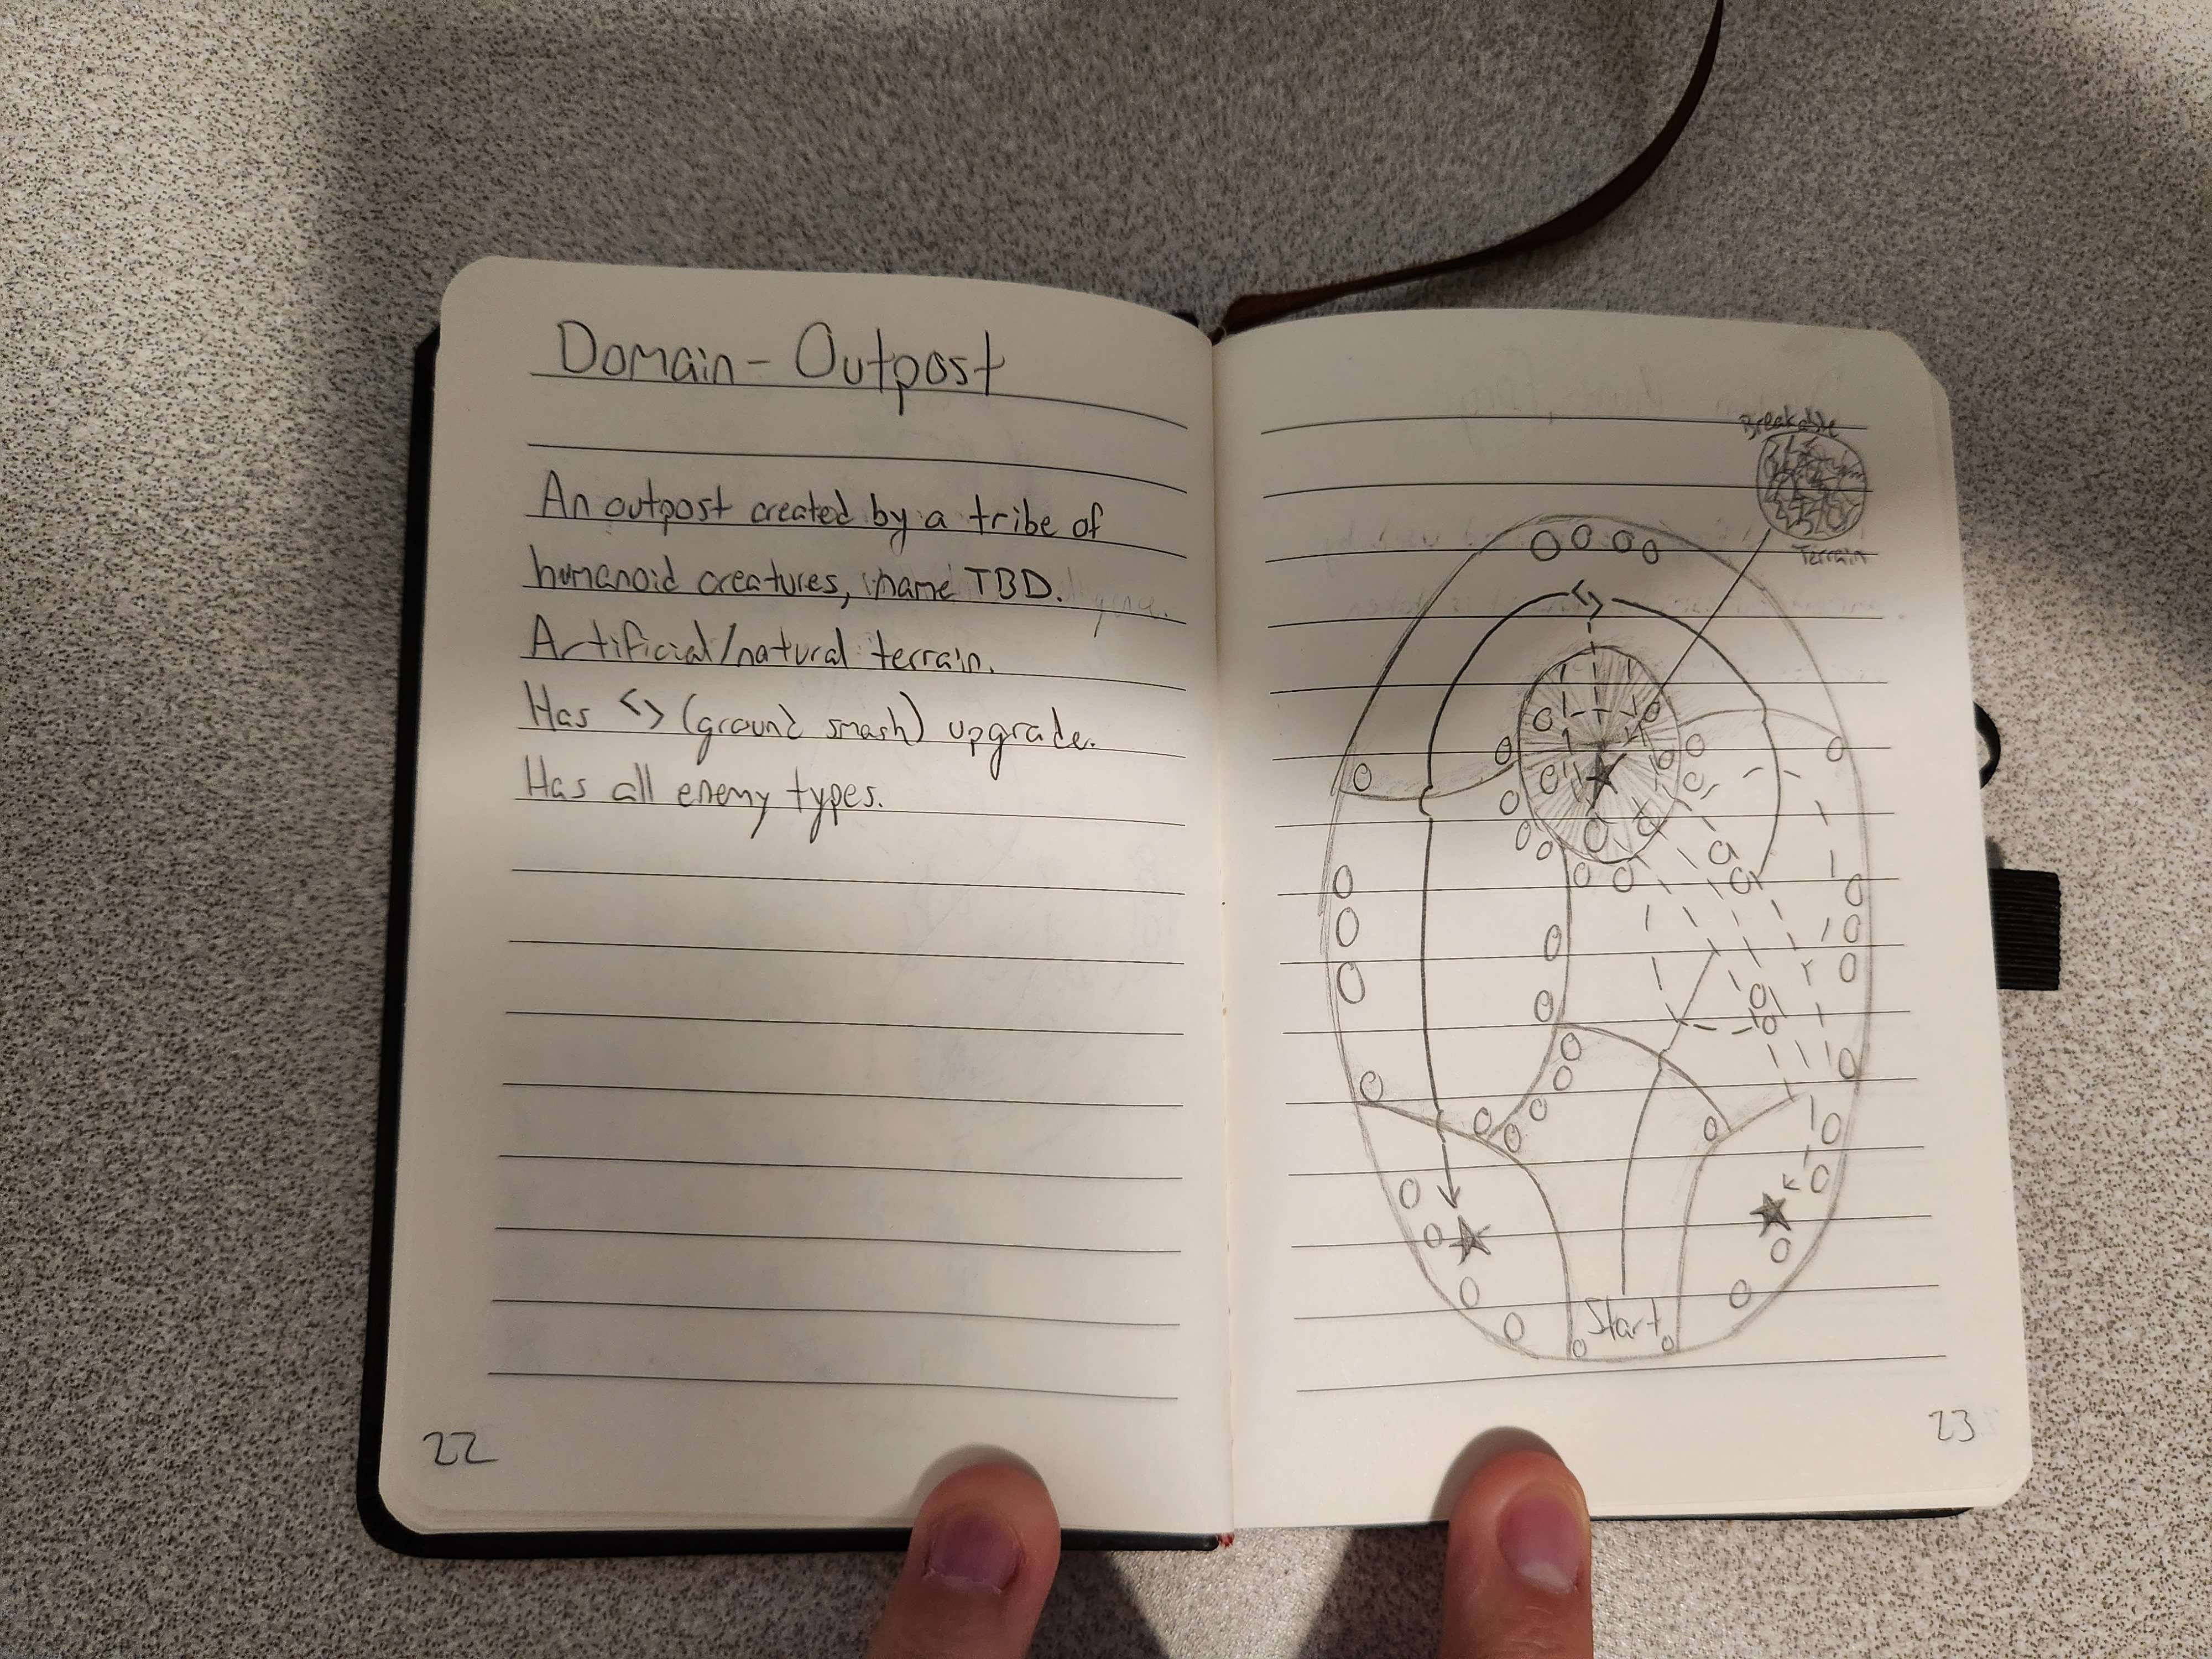 Domain - Outpost
An outpost created by a tribe of
humanoid creatures, name TBD.
Artificial/natural terrain.
Has <> (ground smash) upgrade.
Has all enemy types.
22
Breakable
Terrain
<>
Start
23